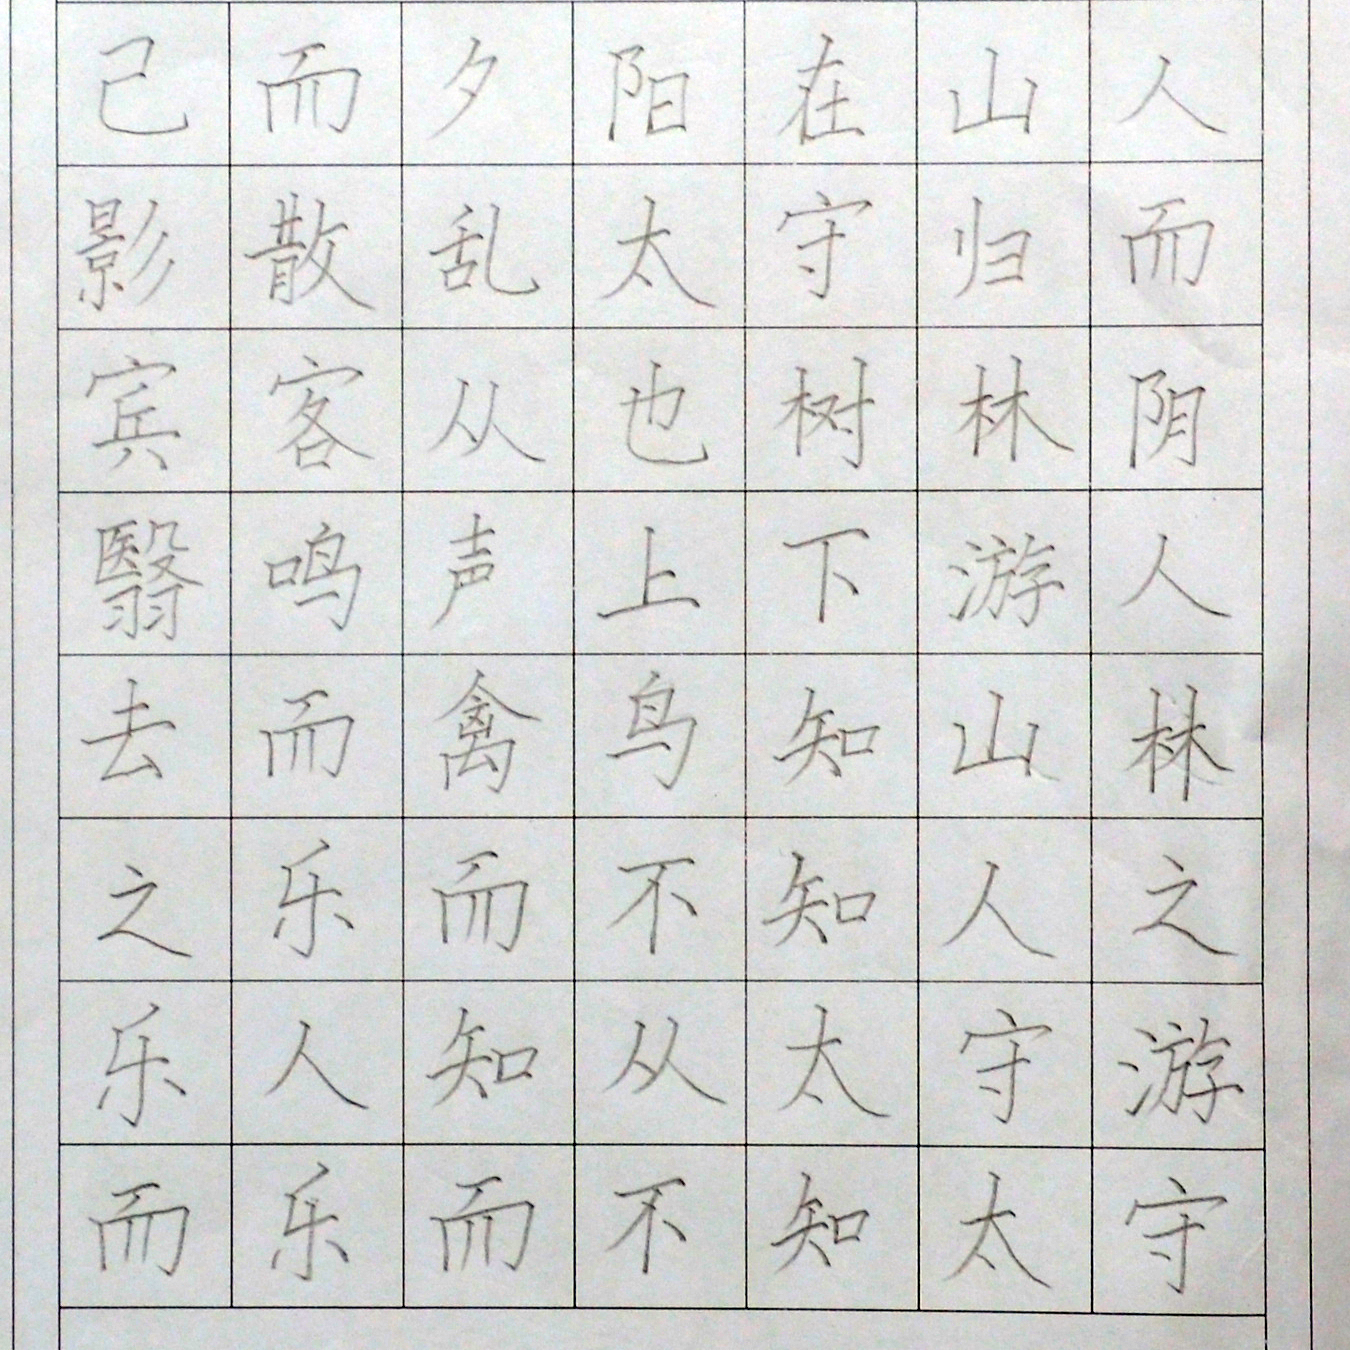 己而夕阳在山人
影散乱太守归而
宾客从也树林阴
翳鸣声上下游人
去而禽鸟知山林
之乐而不知人之
乐人知从太守游
而乐而不知太守